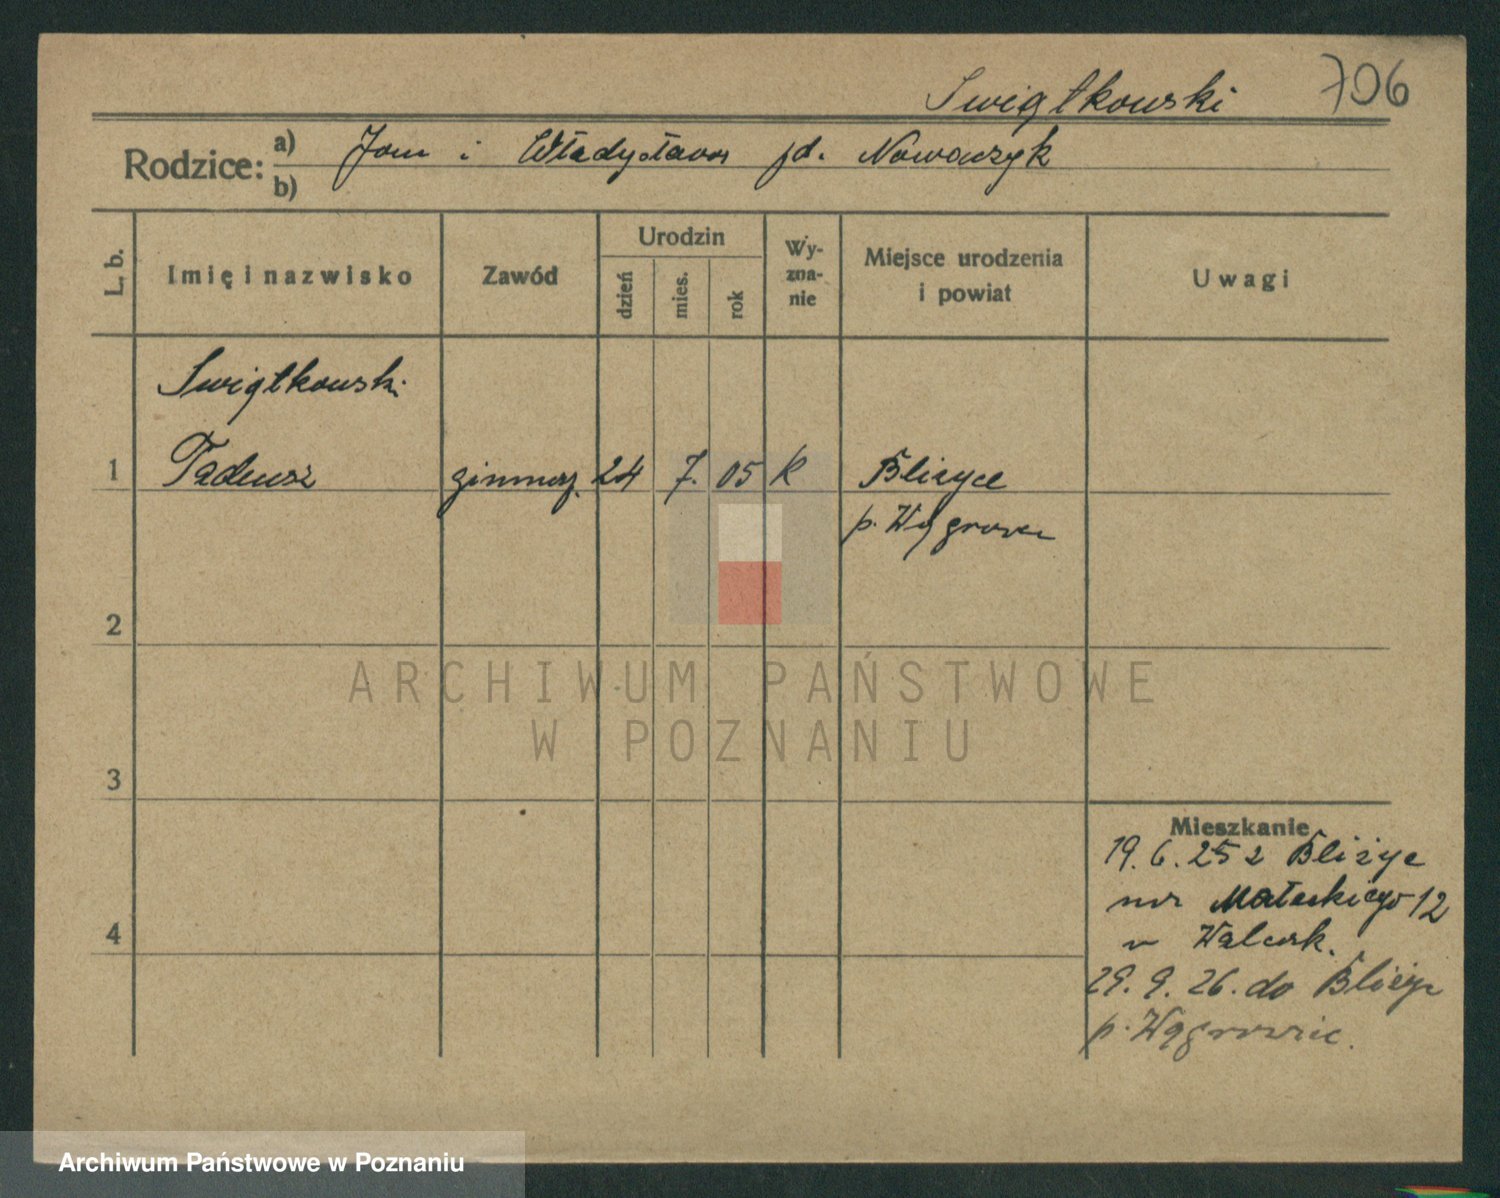 Swiątkowski 706
Rodzice: a) Jan i Władysława zd. Nowaczyk
b)
L. b. Imię i nazwisko Zawód Urodzin Wy- Miejsce urodzenia Uwagi
dzień mies. rok zna- i powiat
nie
Swiątkowski
1 Tadeusz gimnaz. 24 7. 05 k Bliżyce
p. Wągrowiec
2
ARCHIWUM PAŃSTWOWE
W POZNANIU
3
Mieszkanie
19. 6. 25 z Bliżyc
Małeckiego 12
4
29. 9. 26. do Bliżyc
p. Wągrowiec.
Archiwum Państwowe w Poznaniu